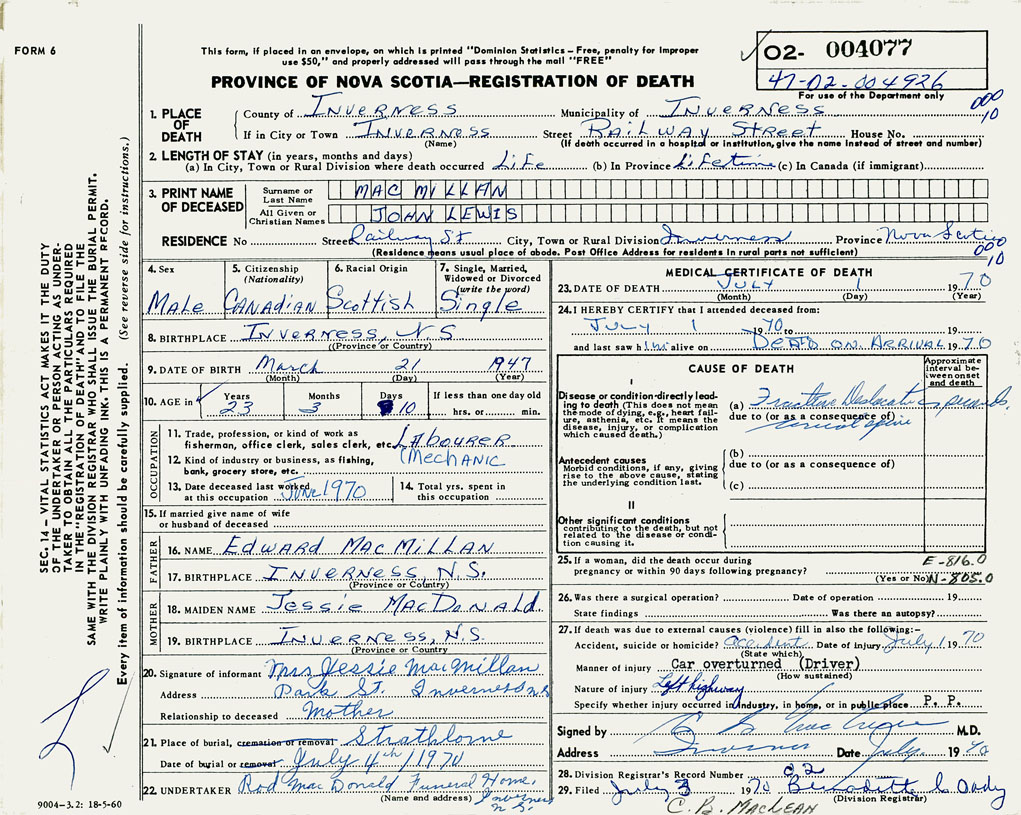 FORM 6
This form, if placed in an envelope, on which is printed "Dominion Statistics – Free, penalty for improper
use $50," and properly addressed will pass through the mail "FREE"
PROVINCE OF NOVA SCOTIA—REGISTRATION OF DEATH
02- 004077
47-02-004926
For use of the Department only
000
10
1. PLACE OF DEATH
County of INVERNESS Municipality of INVERNESS
If in City or Town INVERNESS Street RAILWAY STREET House No.
(Name) (If death occurred in a hospital or institution, give the name instead of street and number)
2. LENGTH OF STAY (in years, months and days)
(a) In City, Town or Rural Division where death occurred Life (b) In Province Lifetime (c) In Canada (if immigrant)
3. PRINT NAME OF DECEASED
Surname or Last Name MAC MILLAN
All Given or Christian Names JOHN LEWIS
RESIDENCE No Street Railway St City, Town or Rural Division Inverness Province Nova Scotia
(Residence means usual place of abode. Post Office Address for residents in rural parts not sufficient)
000
10
4. Sex Male
5. Citizenship (Nationality) CANADIAN
6. Racial Origin Scottish
7. Single, Married, Widowed or Divorced (write the word) Single
8. BIRTHPLACE INVERNESS, N.S
(Province or Country)
9. DATE OF BIRTH March 21 1947
(Month) (Day) (Year)
10. AGE in Years 23 Months 3 Days 10 If less than one day old
hrs. or min.
OCCUPATION
11. Trade, profession, or kind of work as
fisherman, office clerk, sales clerk, etc. LAbourer
12. Kind of industry or business, as fishing, (MechANIC
bank, grocery store, etc.
13. Date deceased last worked
at this occupation June 1970
14. Total yrs. spent in
this occupation
15. If married give name of wife
or husband of deceased
FATHER
16. NAME EDWARD MACMILLAN
17. BIRTHPLACE INVERNESS, N.S.
(Province or Country)
MOTHER
18. MAIDEN NAME Jessie MACDONAld.
19. BIRTHPLACE INVERNESS, N.S.
(Province or Country
20. Signature of informant Mrs Jessie MacMillan
Address Park St. Inverness N.S
Relationship to deceased Mother
21. Place of burial, cremation or removal Strathlorne
Date of burial or removal July 4th/1970
22. UNDERTAKER Rod MacDonald Funeral Home,
(Name and address) Inverness
N.S.
MEDICAL CERTIFICATE OF DEATH
23. DATE OF DEATH JULY 1 1970
(Month) (Day) (Year)
24. I HEREBY CERTIFY that I attended deceased from:
JULY 1 1970 to 19
and last saw him alive on DEAD ON ARRIVAL 1970
CAUSE OF DEATH
Approximate
interval be-
tween onset
and death
I
Disease or condition directly lead-
ing to death (This does not mean
the mode of dying, e.g., heart fail-
ure, asthenia, etc. It means the
disease, injury, or complication
which caused death.)
(a) Fracture Dislocation
due to (or as a consequence of)
cervical spine
Antecedent causes
Morbid conditions, if any, giving
rise to the above cause, stating
the underlying condition last.
(b)
due to (or as a consequence of)
(c)
II
Other significant conditions
contributing to the death, but not
related to the disease or condi-
tion causing it.
25. If a woman, did the death occur during E-816.0
pregnancy or within 90 days following pregnancy?
(Yes or No) N-805.0
26. Was there a surgical operation? Date of operation 19
State findings Was there an autopsy?
27. If death was due to external causes (violence) fill in also the following:-
Accident, suicide or homicide? accident Date of injury July 1 1970
(State which)
Manner of injury Car overturned (Driver)
(How sustained)
Nature of injury Left highway
Specify whether injury occurred in industry, in home, or in public place P. P.
Signed by M.D.
Address Inverness Date July 1970
28. Division Registrar's Record Number 02
29. Filed July 3 1970 Bernadette
(Division Registrar)
C. B. MacLEAN
SEC. 14 – VITAL STATISTICS ACT MAKES IT THE DUTY
OF THE UNDERTAKER OR PERSON ACTING AS UNDER-
TAKER TO OBTAIN ALL THE PARTICULARS REQUIRED
IN THE "REGISTRATION OF DEATH" AND TO FILE THE
SAME WITH THE DIVISION REGISTRAR WHO SHALL ISSUE THE BURIAL PERMIT.
WRITE PLAINLY WITH UNFADING INK. THIS IS A PERMANENT RECORD.
Every item of information should be carefully supplied. (See reverse side for instructions.)
9004-3.2: 18-5-60